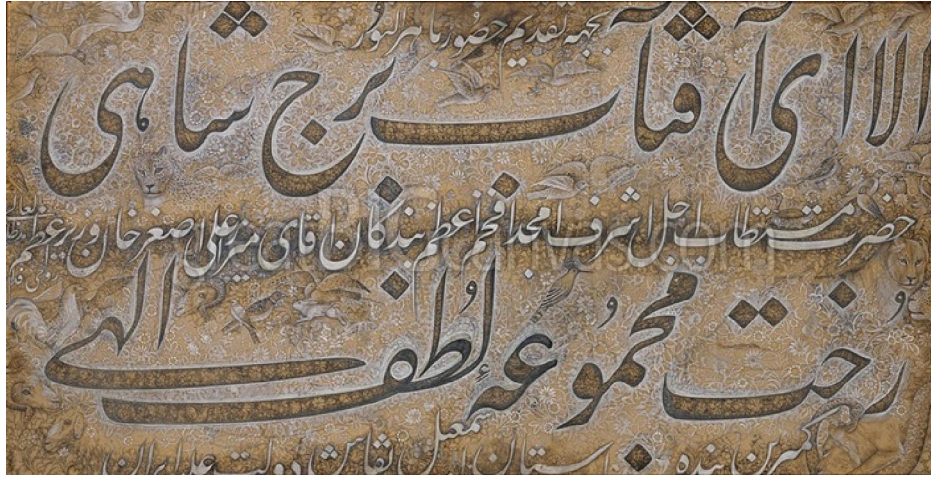 بجهة تقدیم حضور باهر النور
الا ای آفتاب برج شاهی
حضرت مستطاب اجل اشرف امجد افخم اعظم بندگان اقای میرزا علی اصغر خان وزیر اعظم
رخت مجموعهٔ لطف الهی
کمترین بنده آستان اسمعیل نقاش دولت علیه ایران